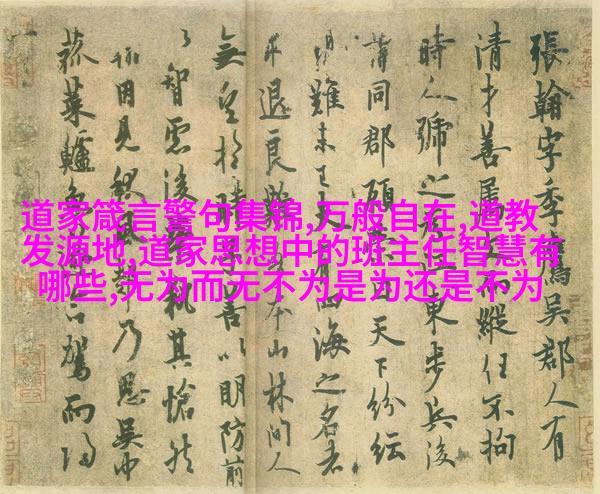 張翰字季鷹吳郡人有
清才善屬縱任不拘
時人號之東步兵後
同郡顧天下紛紜
難未四海之名者
求退良本山林間人
無望於善以明防前
智慮後執其愴然
因見秋乃思吳中
菰菜鱸駕而歸
道家箴言警句集锦,万般自在,道教
发源地,道家思想中的班主任智慧有
哪些,无为而无不为是为还是不为